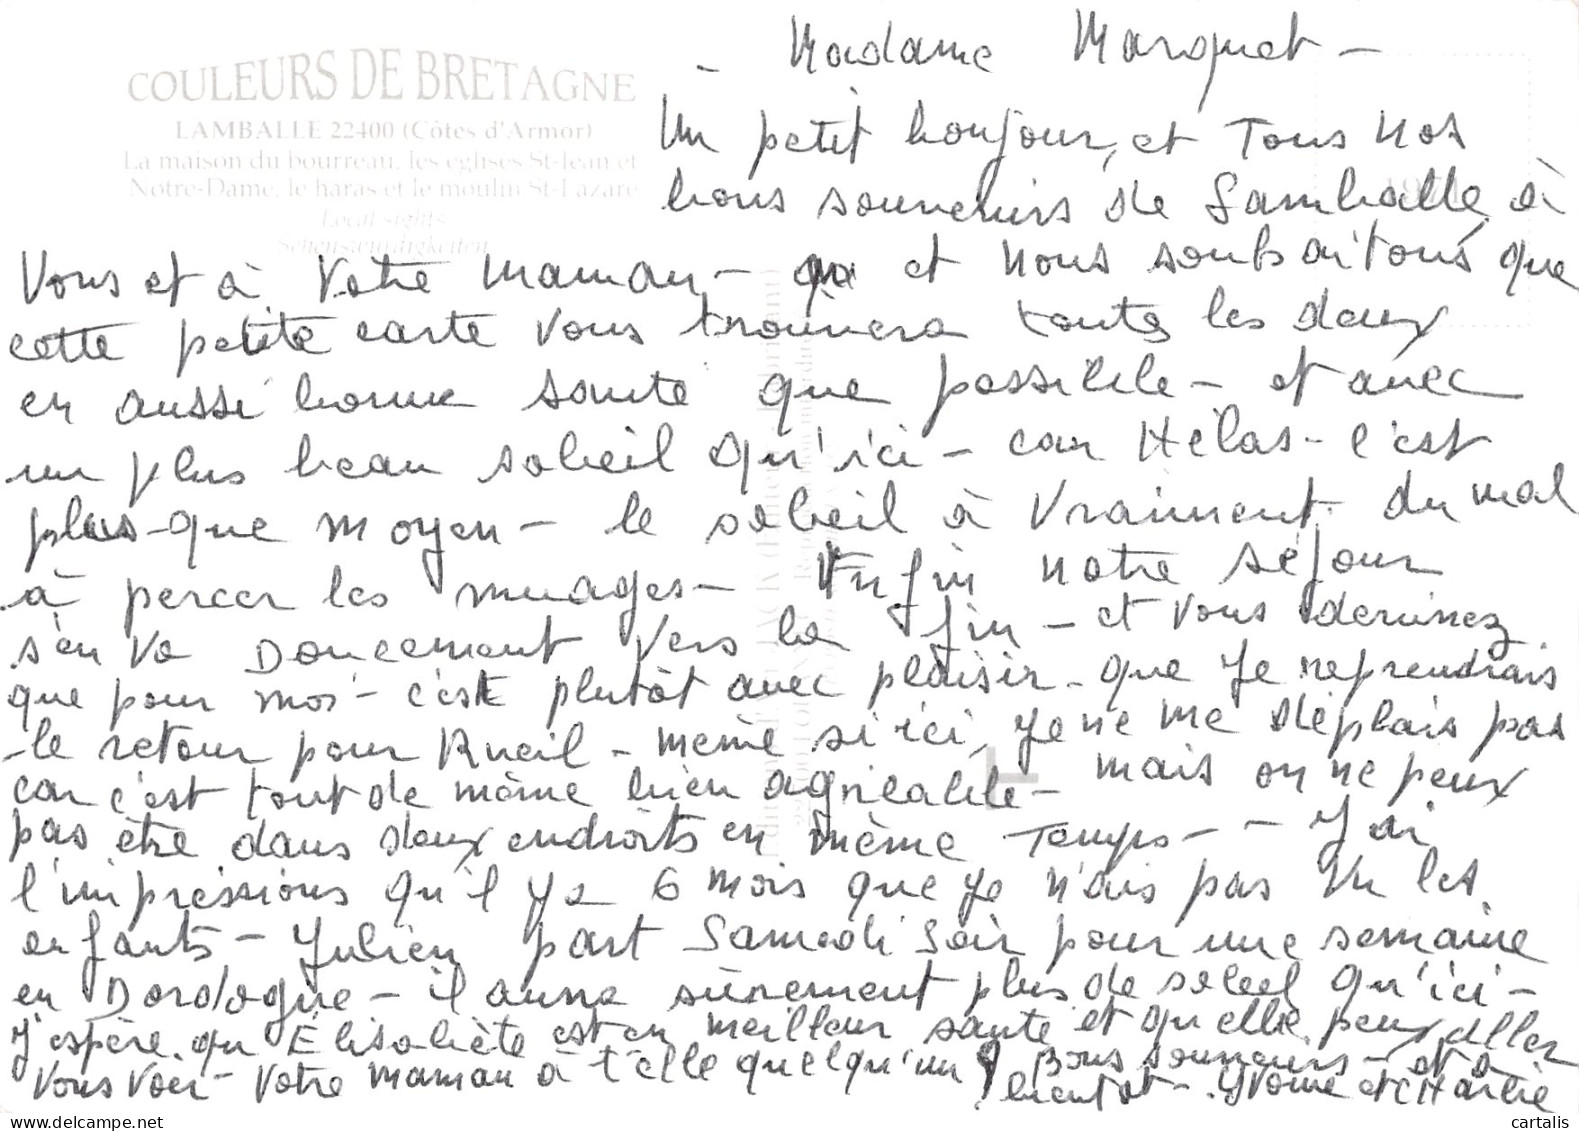 - Madame Marquet -
COULEURS DE BRETAGNE
LAMBALLE 22400 (Côtes d'Armor)
La maison du bourreau, les eglises St-Jean et
Notre-Dame, le haras et le moulin St-Lazare
Local sights
Sehenswürdigkeiten
Un petit bonjour, et Tous Nos
bons souvenirs de Lamballe, à
Vous et à Votre Maman - et Nous souhaitons que
cette petite carte Vous trouvera toutes les deux
en aussi bonne santé que possible - et avec
un plus beau soleil qu'ici - car Hélas - c'est
plus-que Moyen - le soleil à Vraiment du mal
à percer les nuages - Enfin notre séjour
s'en Va Doucement Vers la fin - et Vous devinez
que pour moi - c'est plutôt avec plaisir - que Je reprendrais
-le retour pour Rueil - même si ici, Je ne me déplais pas
car c'est tout de même bien agréable - mais on ne peux
pas être dans deux endroits en même Temps - - J'ai
l'impressions qu'il Ya 6 mois que Je N'ais pas Vu les
enfants - Julien part Samedi Soir pour une semaine
en Dordogne - il aura sûrement plus de soleil qu'ici -
J'espère qu Élisabète est en meilleur santé et qu'elle peux aller
Vous Voir - Votre Maman à t'elle quelqu'un ? Bons souvenirs - et à
bientôt - Yvonne et Charlie
cartalis